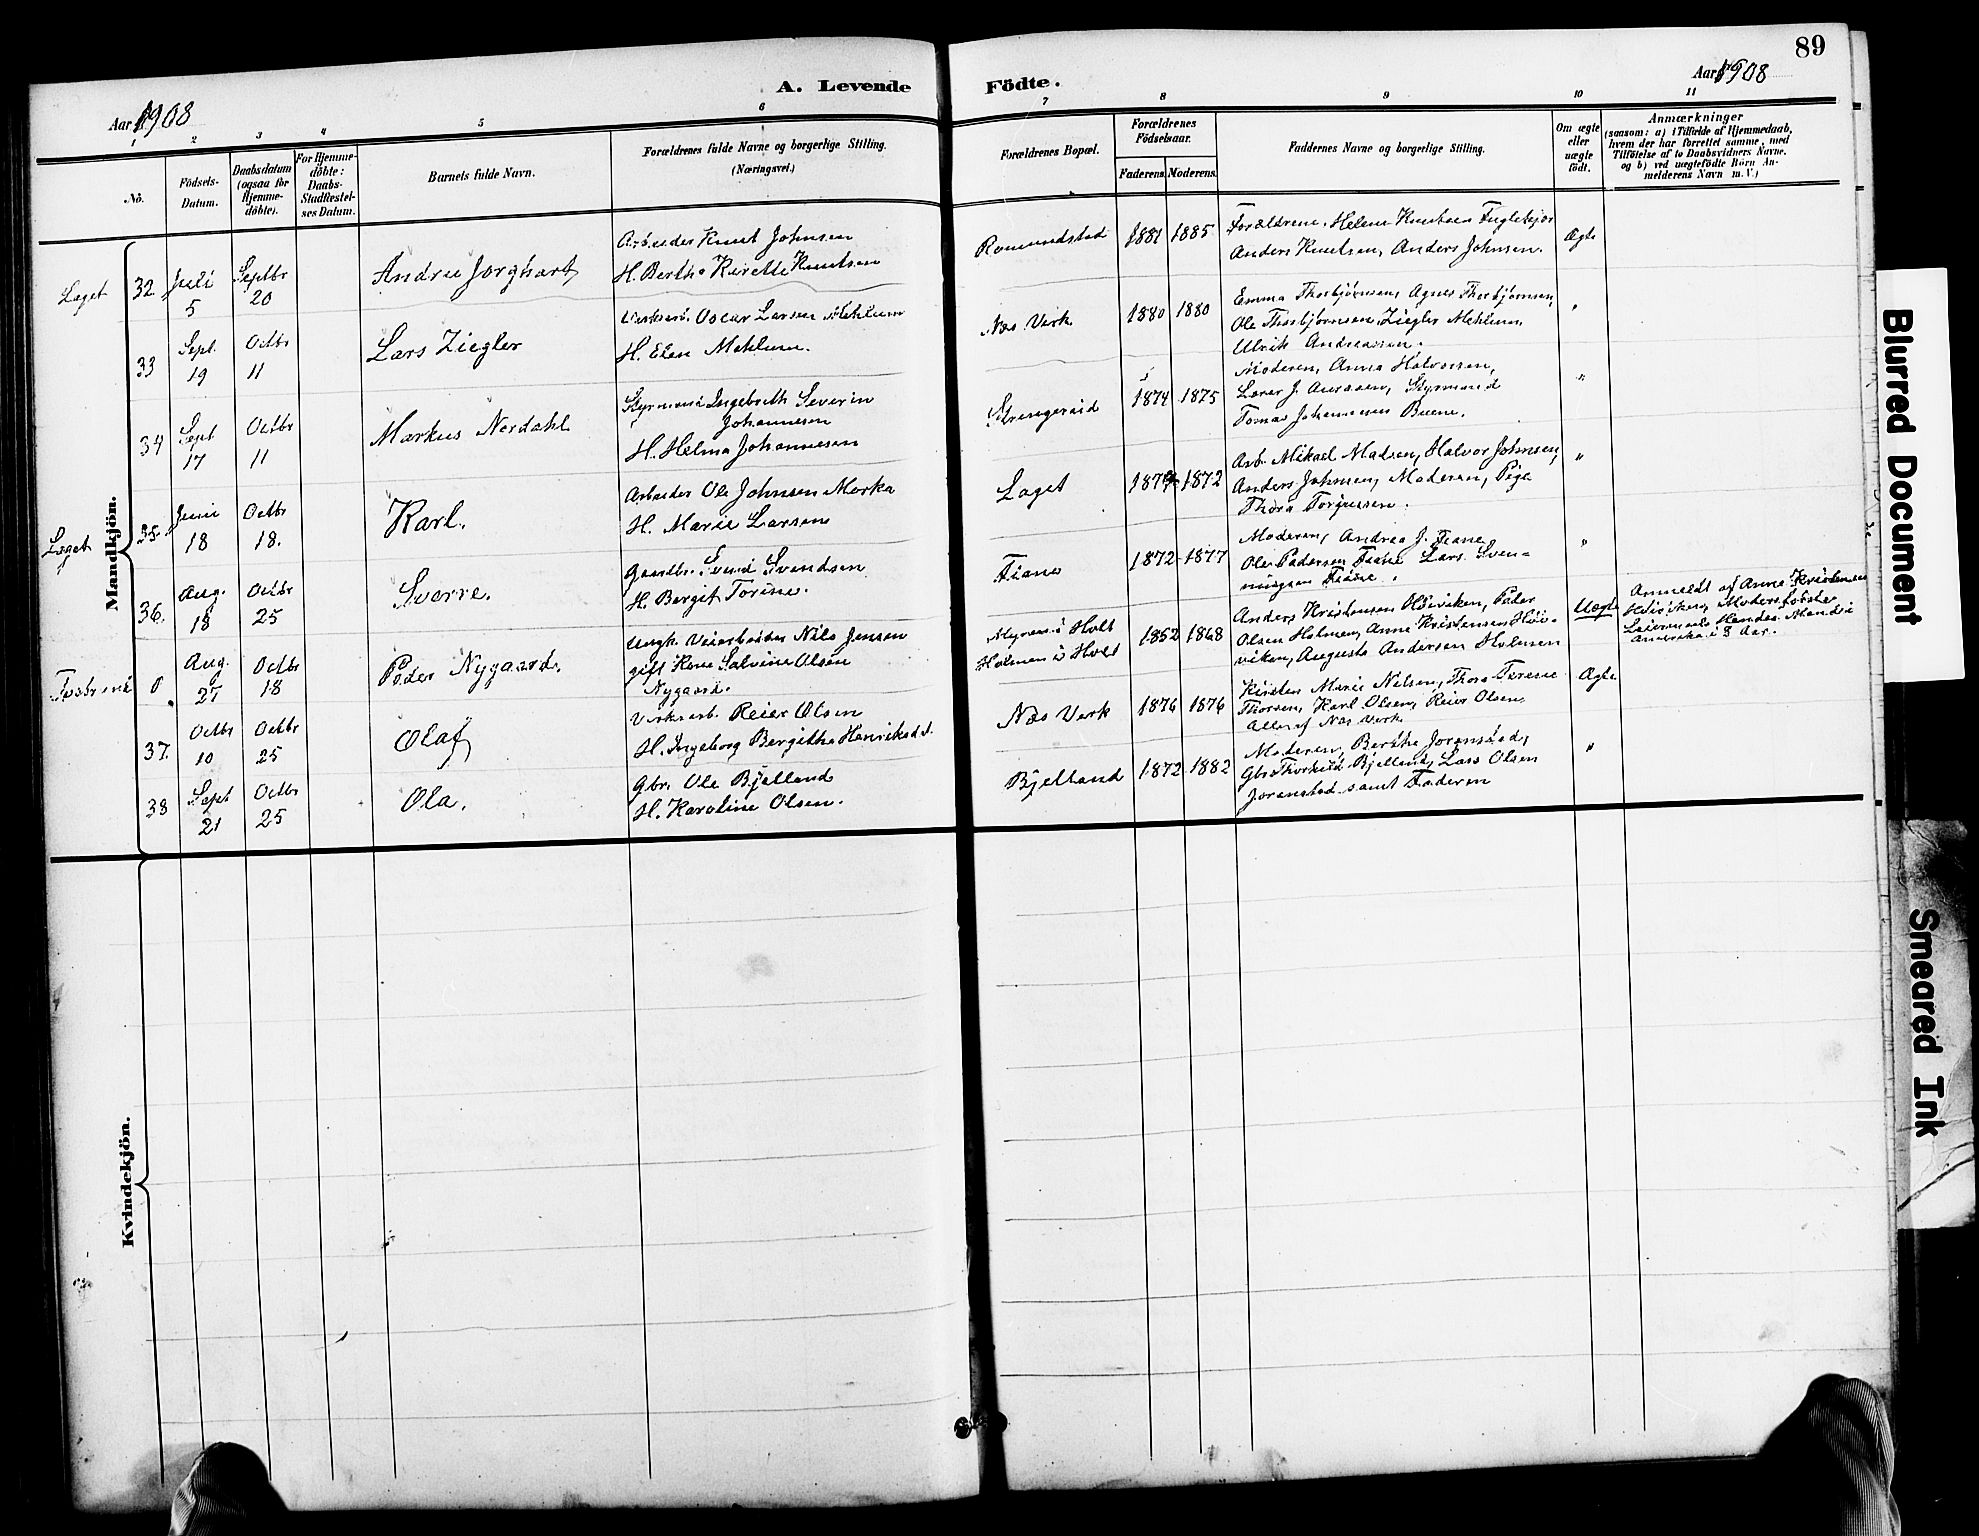 89
A. Levende Födte.
Aar 1908
Aar 1908
1 2 3 4 5 6 7 8 9 10 11
No.
Födsels-
Datum.
Daabsdatum
(ogsaa for
Hjemme-
döbte).
For Hjemme-
döbte:
Daabs-
Stadfæstel-
ses Datum.
Barnets fulde Navn.
Forældrenes fulde Navne og borgerlige Stilling.
(Næringsvei.)
Forældrenes Bopæl.
Forældrenes
Födselsaar.
Faderens. Moderens.
Faddernes Navne og borgerlige Stilling.
Om ægte
eller
uægte
født.
Anmærkninger
(saasom: a) i Tilfælde af Hjemmedaab,
hvem der har forrettet samme, med
Tilföielse af to Daabsvidners Navne.
og b) ved uægtefödte Börn An-
melderens Navn m. V.)
Mandkjön.
Laget
32
Juli
5
Septbr
20
Andrea Jorghart
Arbeider Knut Johnsen
H. Bertha Kirette Knutsen
Romundstad
1881 1885
Forældrene, Helene Knutsen Fuglekjær
Anders Knutsen, Anders Johnsen.
Ægte
33
Sept.
19
Octbr
11
Lars Ziegler
Verksarb. Oscar Larsen Mehlum
H. Elen Mehlum.
Næs Verk
1880 1880
Emma Thorbjørnsen, Agnes Thorbjørnsen,
Ole Thorbjørnsen, Ziegler Mehlum,
Ulrik Andreassen.
"
34
Sept
17
Octbr
11
Markus Nordahl
Styrmand Ingebreth Severin
Johannesen
H. Helma Johannesen
Strengereid
1874 1875
Moderen, Anna Halvorsen,
Lærer J. Aanesen, Styrmand
Tomas Johannesen Buene.
"
Laget
35
Juni
18
Octbr
18.
Karl.
Arbeider Ole Johnsen Morka
H. Marie Larsen
Laget
1872
Arb. Mikael Madsen, Halvor Johnsen,
Anders Johnsen, Moderen, Pige
Thora Torgussen.
"
36.
Aug.
18
Octbr
25
Sverre.
Gaardbr. Svend Svendsen
H. Bergit Torine.
Fiane
1872 1877
Moderen, Andrea J. Fiane
Ole Pedersen Fiane Lars Sven-
ningsen Fiane.
"
0
Aug.
25
Octbr
18
Peder Nygaard.
Ungk. Veiarbeider Nils Jensen
gift Kone Salvine Olsen
Nygaard.
Myren i Holt
Holmen i Holt
1852 1868
Anders Kristensen Høiviken, Peder
Olsen Holmen, Anne Kristensen Høi-
viken, Augusta Andersen Holmen
Uægte
Anmeldt af Anne Kristensen
Høiviken, Moders første
Leiermaal Hendes Mand i
Amerika i 8 Aar.
37.
Octbr
10
Octbr
25
Olaf
Verksarb. Reier Olsen
H. Ingeborg Bergitha Henriksd.
Næs Verk
1876 1876
Kirsten Marie Nilsen, Thora Terese
Thorsen, Karl Olsen, Reier Olsen,
Alle af Næs Verk
Ægte
38
Sept
21
Octbr
25
Ola.
Gbr. Ole Bjelland
H. Karoline Olsen.
Bjelland
1872 1882
Moderen, Berthe Jorenstad,
Gbr. Thorkild Bjelland, Lars Olsen
Jorenstad samt Faderen
"
Kvindekjön.
Blurred Document
Smeared Ink